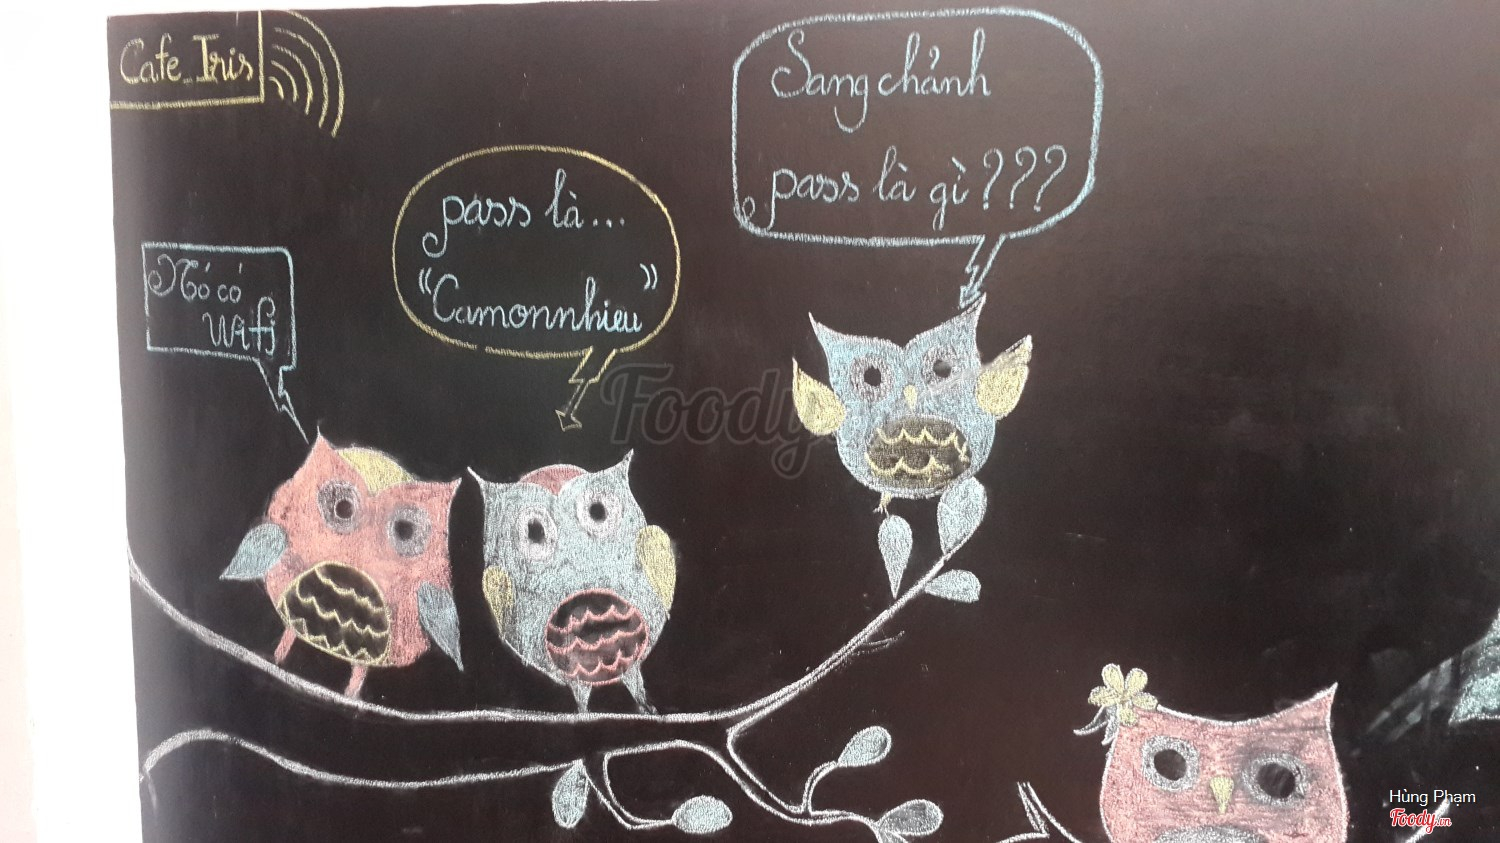 Cafe_Iris
Sang chảnh
pass là gì???
pass là...
"Camonnhieu"
Nó có
Wifi
Foody
Hùng Phạm
Foody.vn